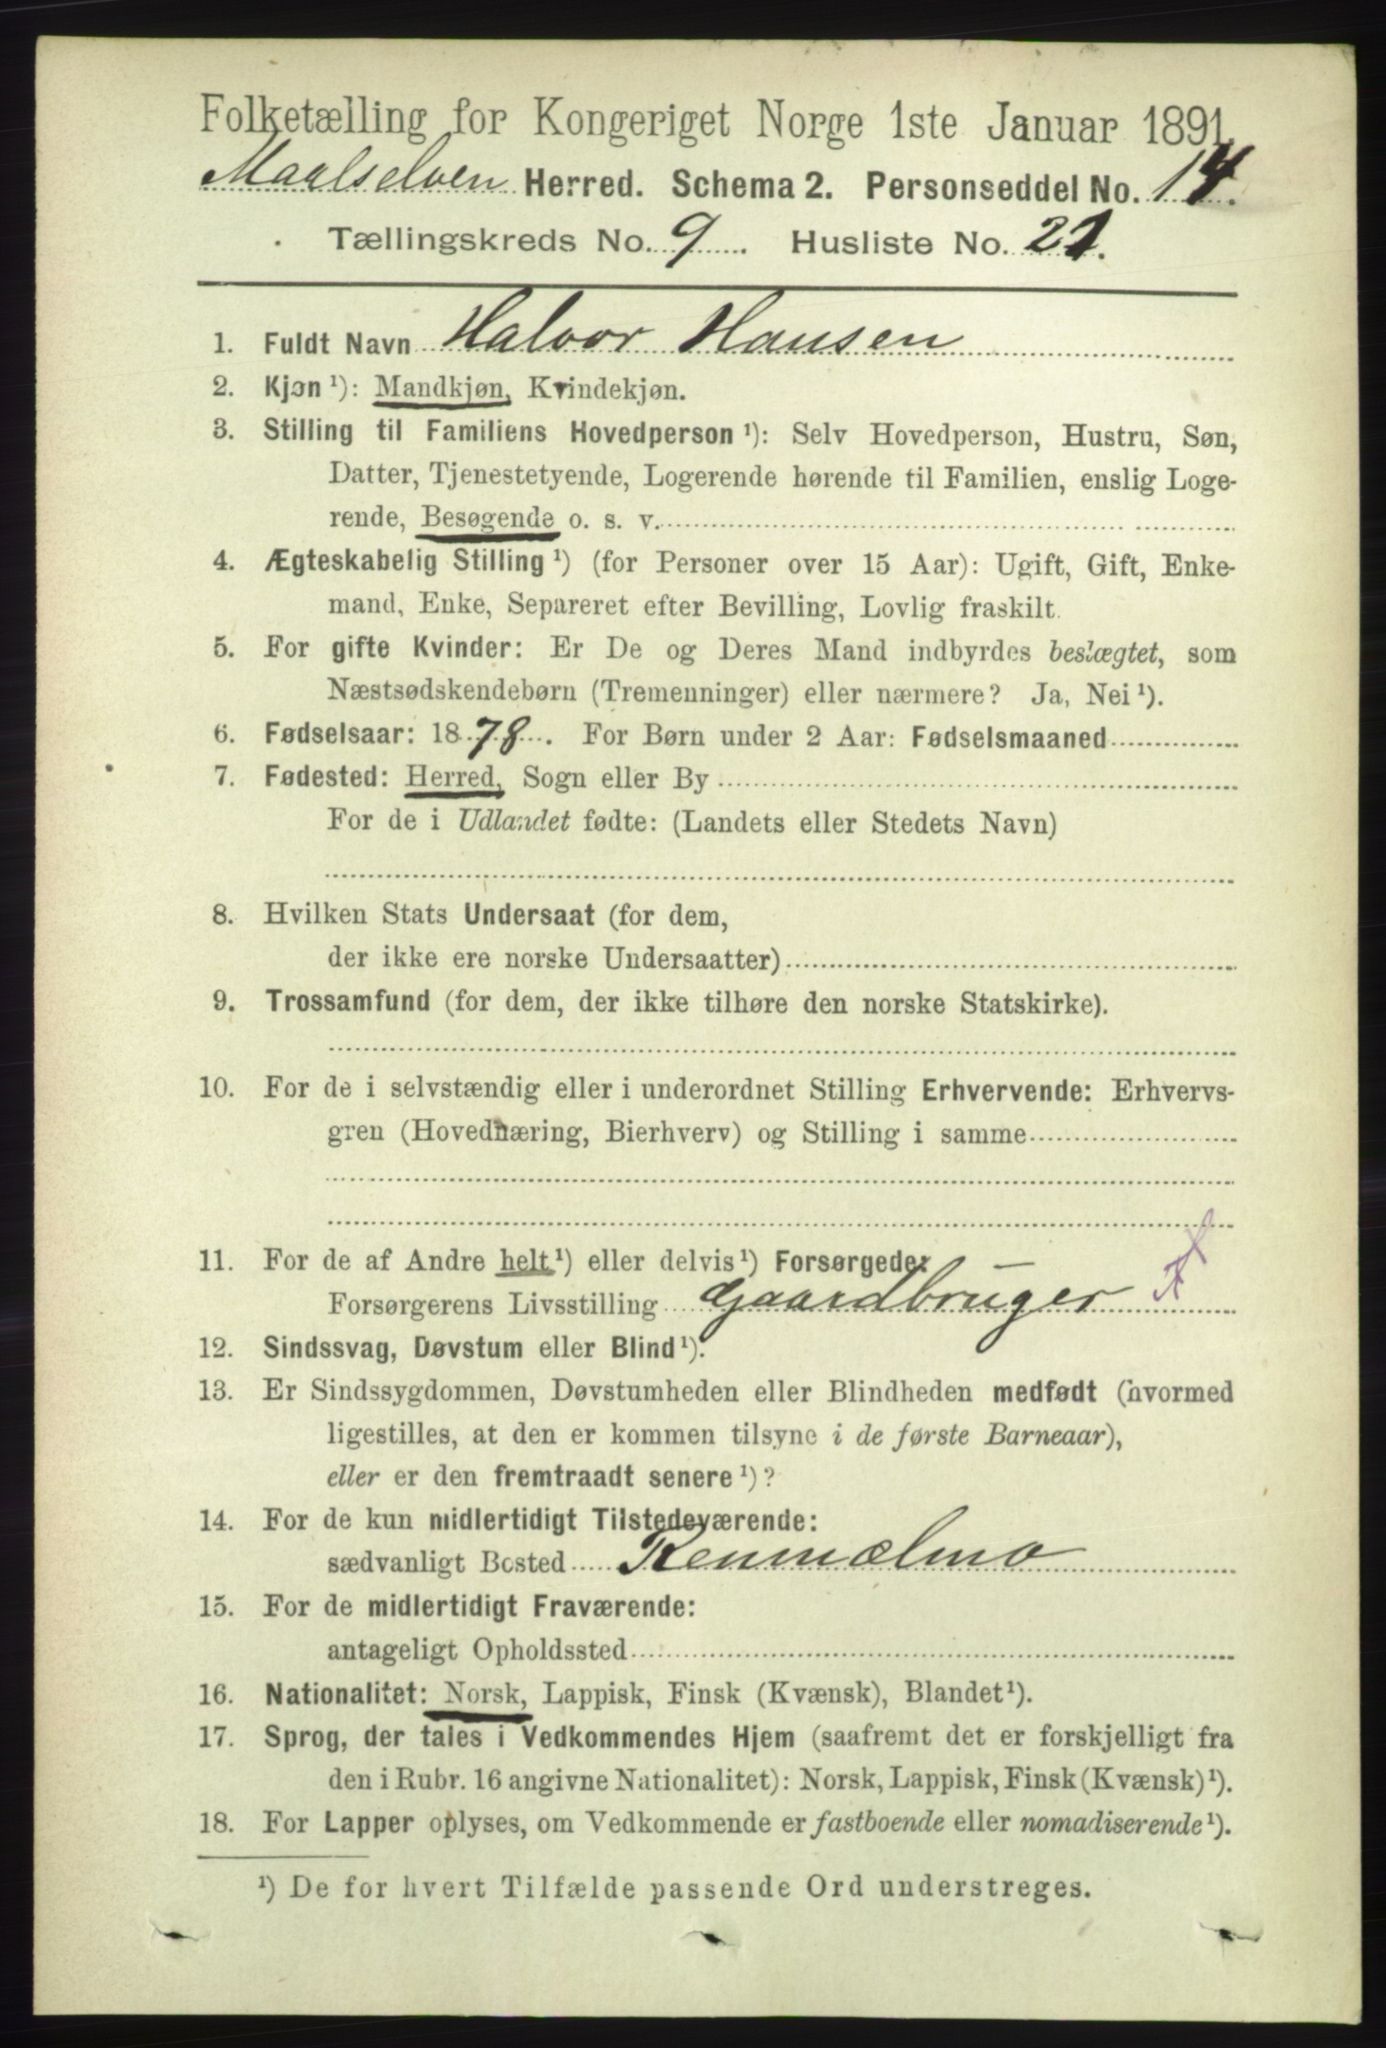 Folketælling for Kongeriget Norge 1ste Januar 1891.
Maalselven Herred. Schema 2. Personseddel No. 14.
Tællingskreds No. 9. Husliste No. 21.
1. Fuldt Navn Halvor Hansen
2. Kjøn ¹): Mandkjøn, Kvindekjøn.
3. Stilling til Familiens Hovedperson ¹): Selv Hovedperson, Hustru, Søn,
Datter, Tjenestetyende, Logerende hørende til Familien, enslig Loge-
rende, Besøgende o. s. v.
4. Ægteskabelig Stilling ¹) (for Personer over 15 Aar): Ugift, Gift, Enke-
mand, Enke, Separeret efter Bevilling, Lovlig fraskilt.
5. For gifte Kvinder: Er De og Deres Mand indbyrdes beslægtet, som
Næstsødskendebørn (Tremenninger) eller nærmere? Ja, Nei ¹).
6. Fødselsaar: 1878. For Børn under 2 Aar: Fødselsmaaned
7. Fødested: Herred, Sogn eller By
For de i Udlandet fødte: (Landets eller Stedets Navn)
8. Hvilken Stats Undersaat (for dem,
der ikke ere norske Undersaatter)
9. Trossamfund (for dem, der ikke tilhøre den norske Statskirke).
10. For de i selvstændig eller i underordnet Stilling Erhvervende: Erhvervs-
gren (Hovednæring, Bierhverv) og Stilling i samme
11. For de af Andre helt ¹) eller delvis ¹) Forsørgede:
Forsørgerens Livsstilling Gaardbruger
12. Sindssvag, Døvstum eller Blind ¹).
13. Er Sindssygdommen, Døvstumheden eller Blindheden medfødt (hvormed
ligestilles, at den er kommen tilsyne i de første Barneaar),
eller er den fremtraadt senere ¹)?
14. For de kun midlertidigt Tilstedeværende:
sædvanligt Bosted Rennælmo
15. For de midlertidigt Fraværende:
antageligt Opholdssted
16. Nationalitet: Norsk, Lappisk, Finsk (Kvænsk), Blandet ¹).
17. Sprog, der tales i Vedkommendes Hjem (saafremt det er forskjelligt fra
den i Rubr. 16 angivne Nationalitet): Norsk, Lappisk, Finsk (Kvænsk) ¹).
18. For Lapper oplyses, om Vedkommende er fastboende eller nomadiserende ¹).
¹) De for hvert Tilfælde passende Ord understreges.